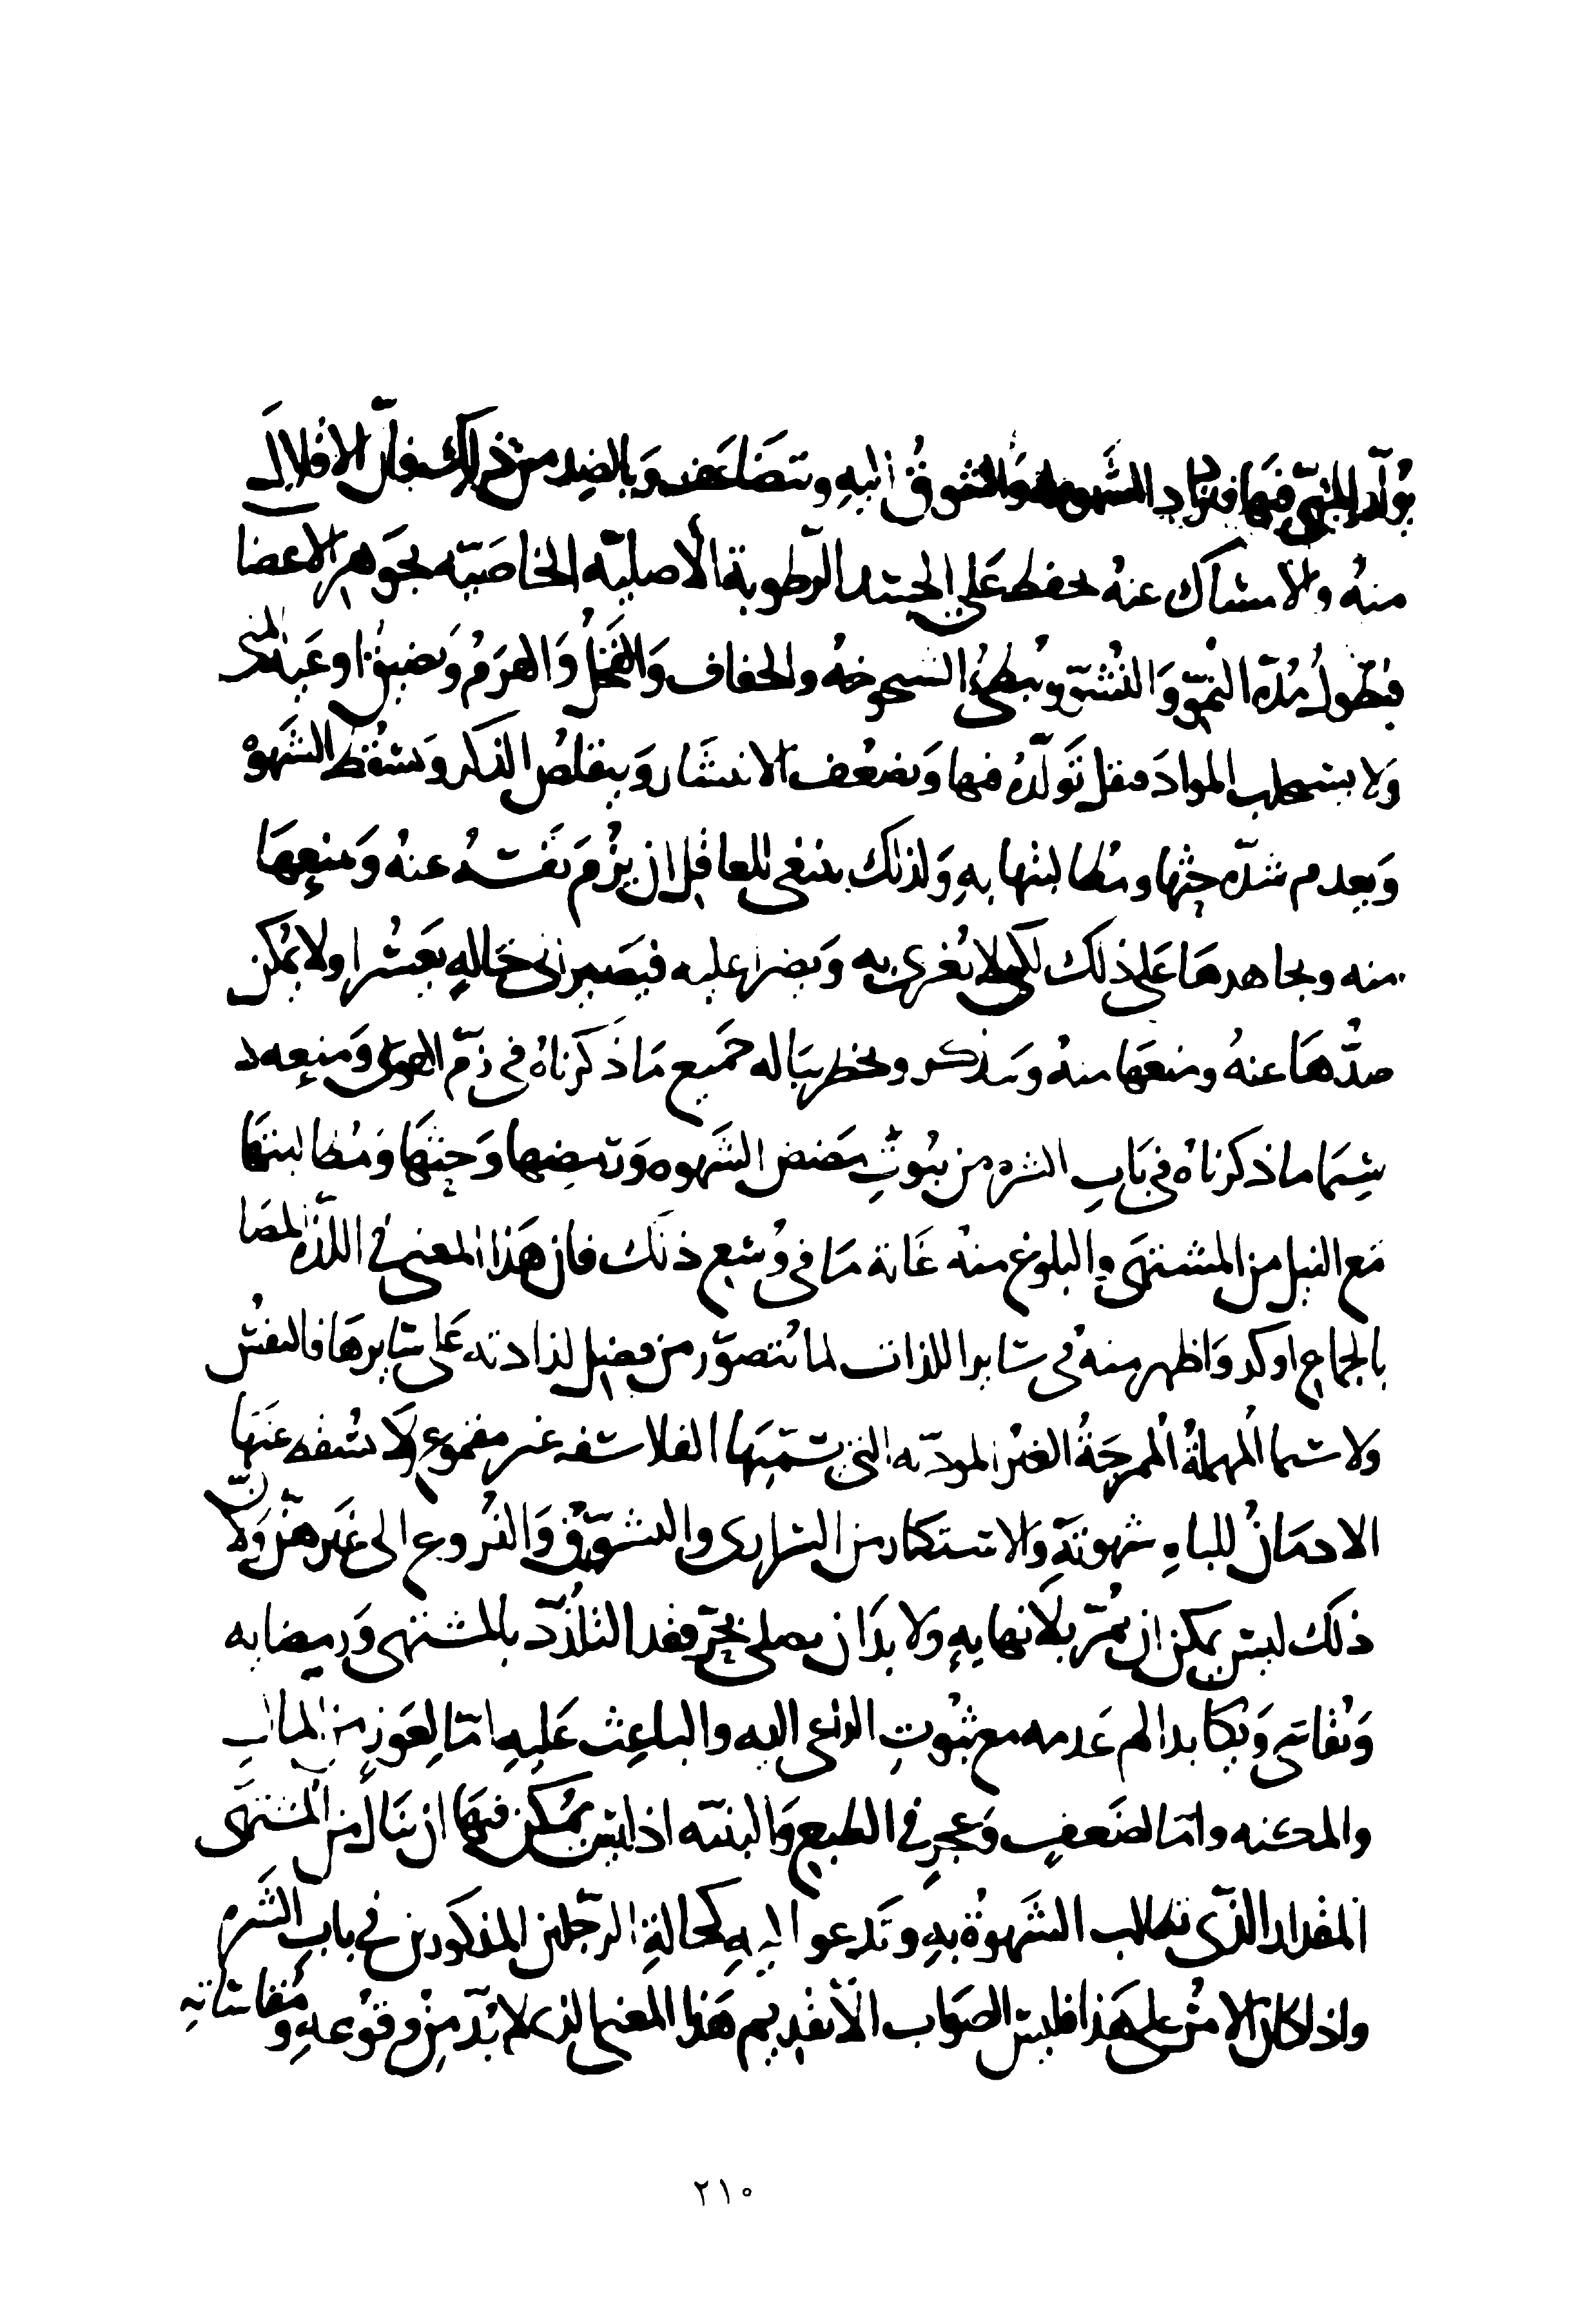 تولّد المني فيها فتزداد الشهوة له والشوق إليه وتتضاعف وبالضد من ذلك فإنّ الاقلال
منهُ والامساك عنهُ يحفظ عَلى الجسَد الرّطوبة الأصليّه الخاصّيّه بجَوَاهر الاعضا
فتطول مُدّة النموّ وَالنُشوّ وتُبطئ الشيخوخهُ والجفاف وَالقَحَلُ وَالهَرَمُ وَتضيقُ اوعَية المنى
وَلا يستجلب الموادَ فيقل تَولّدُه فيها وَيضعُف الانتشَار وَيتقلصُ الذكر وَتسقُط الشَهوهْ
وَيعدم شدّه حثها ومُطالبتها بهِ وَلذلك ينبغي للعاقِل ان يزُمّ نَفسَهُ عنه وَيمنعِهَا
منه ويجاهدهَا عَلى ذلك لكيلا تُغرى به وَيضرا عليه فيصَير الى حَالهٍ يَعسُر او لا يمُكن
صدُّهَا عنهُ ومنعَها منهُ وَيتذكر ويخطر ببَاله جَميع مَا ذَكرناهُ في ذمّ الهوى وَمنعِه لا
سِيّما ما ذكرناهُ في بَابِ الشره من ثبُوتِ مَضض الشَهوه وَرَمضِها وَحثّهَا وَمُطالبتهَا
مَع النيل من المشتهَى والبلوغ منهُ غَاية مَا في وُسع ذلك فان هَذا المعنى في اللذّة المصَا
بالجماعِ اوكد وَاظهر منهُ في سَاير اللذات لما يُتصوّر من فضِل لذاذته على سَايرهَا فالنفسُ
ولا سيما المهملةُ الممرجَةُ الغيرُ المودّبه التي يسَمّيَها الفلاسفه غير مقموعهٍ ولَا يسُقط عَنَها
الادمَانُ للباهِ شهوتَهَ وَالاستكثار من السَراري والتشوّقَ وَالنُزوعَ الى غَيرهنّ ولانّ
ذلَك ليسَ يمكن ان يُمرّ بلَا نهايهِ ولا بدَ ان يصلى بِحَرّ فقد التلذُّذ بالمشتهى وَرَمضا به
وَيُقاسَى وَيكُابد الم عَدمه مع ثبُوتِ الداعي اليه والباعِث عَليهِ امّا لِعَوَزٍ من المالِ
والمكنه وامّا لضَعفٍ وَعجزٍ في الطبع وَالبنيَه اذ ليسَ يمُكن فيهَا ان يَنال من المشتهَى
المقدار الذّي تطالب الشهوُة بهِ وتَدعو اليهِ كحالةِ الرجلين المذكورين في بابِ الشَره
واذا كان الامُر على هَذا فليسَ الصَواب الّا تقديم هَذا المعنى الذي لا بُدّ مِنْ وقوُعهِ وَمُقاساتهِ
٢١٠